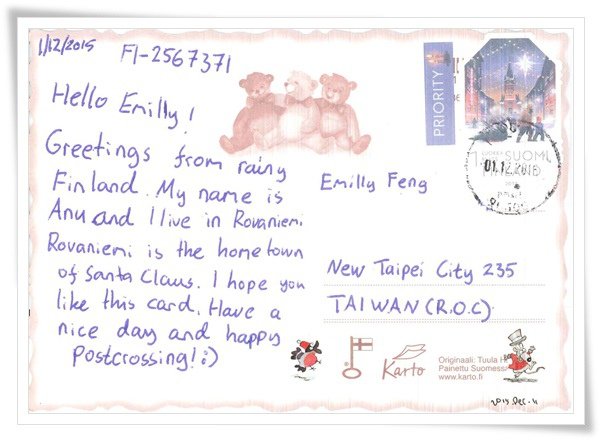 1/12/2015 FI-2567371
Hello Emilly!
Greetings from rainy
Finland. My name is
Anu and I live in Rovaniemi.
Rovaniemi is the hometown
of Santa Claus. I hope you
like this card. Have a
nice day and happy
Postcrossing! :)
PRIORITY
SUOMI
01.12.
Emilly Feng
New Taipei City 235
TAIWAN (R.O.C)
Karto
Originaali: Tuula
Painettu Suomessa
www.karto.fi